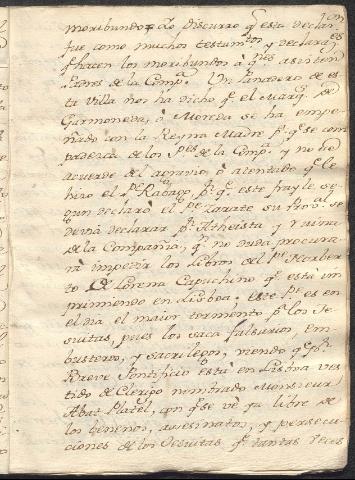 moribundos. Yo discurro q.e esta declar.on
fue como muchos testam.tos y declarac.es
q.e hacen los moribundos à q.nes asisten
Padres de la Comp.a Un Panadero de es
ta Villa nos ha dicho q.e el Marq.s de
Garmoneda, ò Moneda se ha empe
ñado con la Reyna Madre p.a q.e se com
padezca de los P.es de la Comp.a y no se
acuerde del agravio, ò atentado q.e le
hizo el P.e Rabago, p.r q.e este frayle se
gun declarò el P.e Zarate su Prov.al se
devia declarar p.r Atheista y ruina
de la Compañia, q.n no duda procura
rà impedir los Libros del P.e Norber
to de Lorena Capuchino q.e està im
primiendo en Lisboa; este P.e es en
el dia el maior tormento p.a los Je
suitas, pues los saca falsarios, em
busteros, y sacrilegos, siendo q.e p.r
Breve Pontificio està en Lisboa ves
tido de Clerigo nombrado Monsieur
Abat Platel, con q.e se vè ya libre de
los benenos, asesinatos, y persecu
ciones de los Jesuitas q.e tantas veces